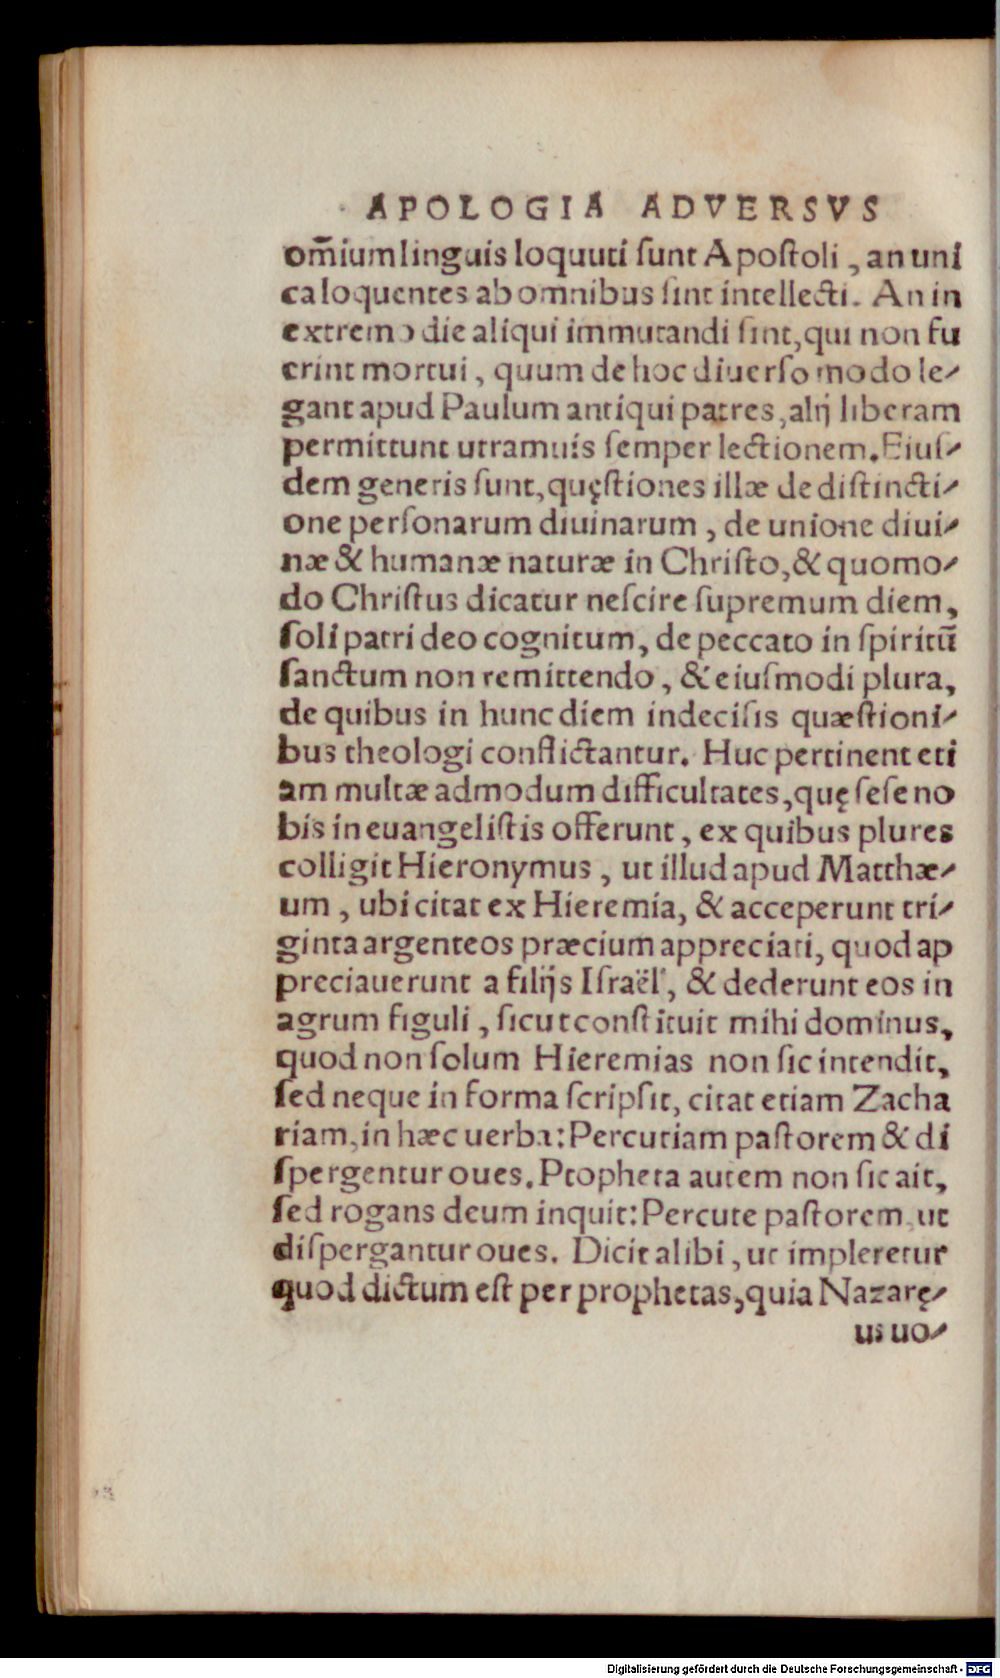 APOLOGIA ADVERSVS
om̅ium linguis loquuti ſunt Apoſtoli, an uni
ca loquentes ab omnibus ſint intellecti. An in
extremo die aliqui immutandi ſint, qui non fu
erint mortui, quum de hoc diuerſo modo le⸗
gant apud Paulum antiqui patres, alij liberam
permittunt utramuis ſemper lectionem. Eiuſ⸗
dem generis ſunt, quęſtiones illæ de diſtincti⸗
one perſonarum diuinarum, de unione diui⸗
næ & humanæ naturæ in Chriſto, & quomo⸗
do Chriſtus dicatur neſcire ſupremum diem,
ſoli patri deo cognitum, de peccato in ſpiritū
ſanctum non remittendo, & eiuſmodi plura,
de quibus in hunc diem indeciſis quæſtioni⸗
bus theologi conflictantur. Huc pertinent eti
am multæ admodum difficultates, quę ſeſe no
bis in euangeliſtis offerunt, ex quibus plures
colligit Hieronymus, ut illud apud Matthæ⸗
um, ubi citat ex Hieremia, & acceperunt tri⸗
ginta argenteos præcium appreciati, quod ap
preciauerunt a filijs Iſraël, & dederunt eos in
agrum figuli, ſicut conſtituit mihi dominus,
quod non ſolum Hieremias non ſic intendit,
ſed neque in forma ſcripſit, citat etiam Zacha
riam, in hæc uerba: Percutiam paſtorem & di
ſpergentur oues. Propheta autem non ſic ait,
ſed rogans deum inquit: Percute paſtorem, ut
diſpergantur oues. Dicit alibi, ut impleretur
quod dictum eſt per prophetas, quia Nazarę⸗
us uo⸗
Digitalisierung gefördert durch die Deutsche Forschungsgemeinschaft - DFG